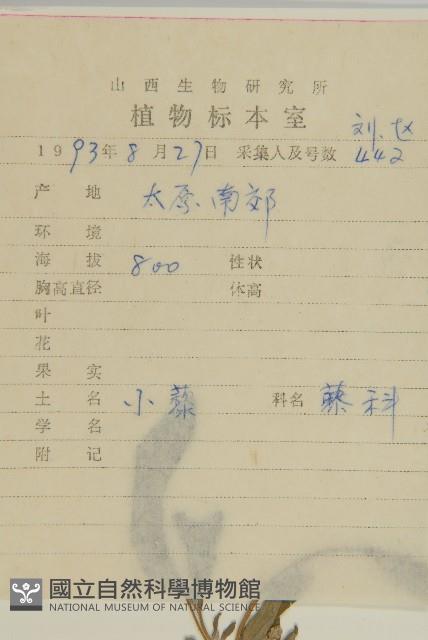 山西生物研究所
植物标本室
1993年8月27日 采集人及号数 刘、赵 442
产地 太原、南郊
环境
海拔 800 性状
胸高直径 体高
叶
花
果实
土名 小藜 科名 藜科
学名
附记
國立自然科學博物館
NATIONAL MUSEUM OF NATURAL SCIENCE